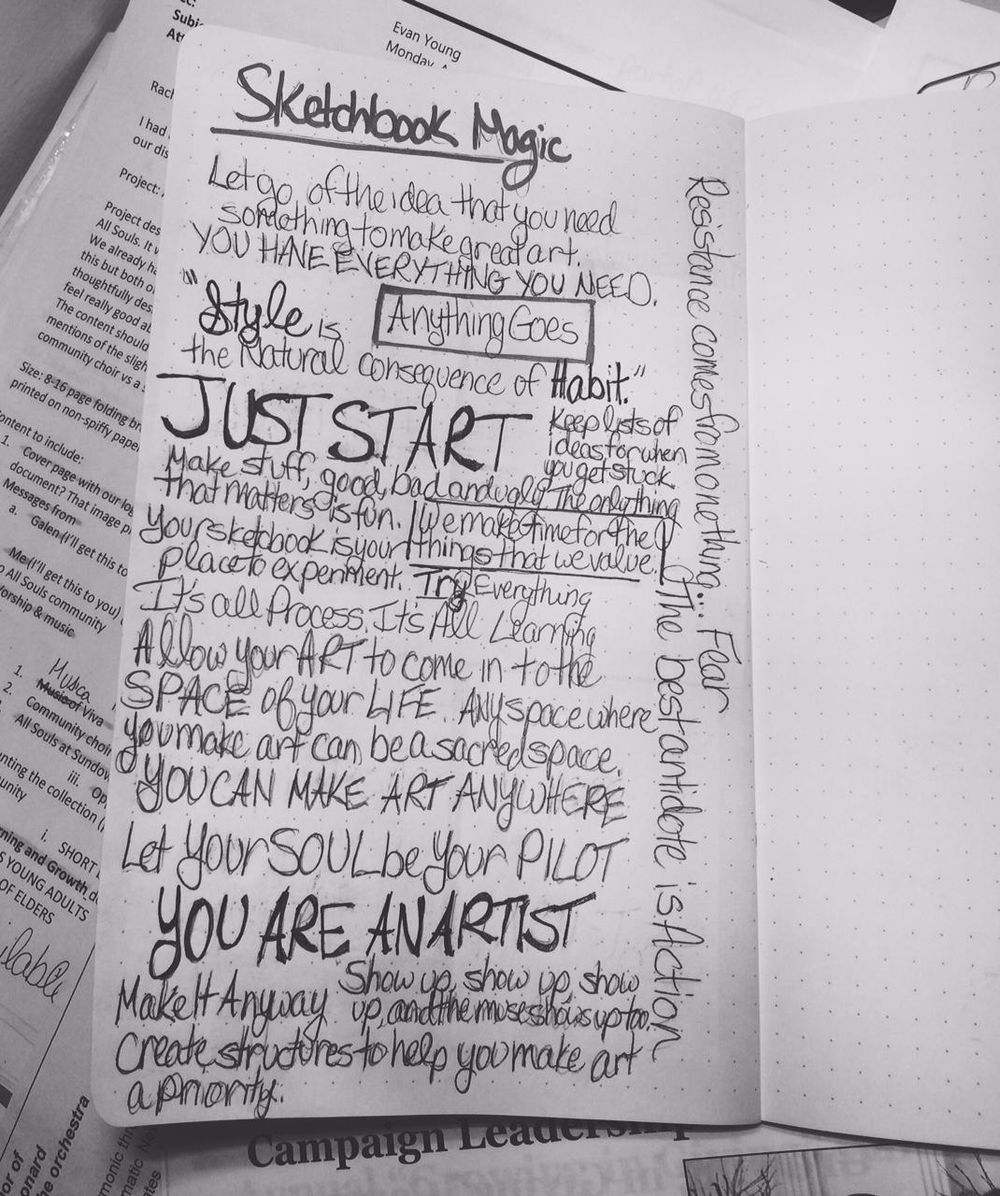 Evan Young
Monday,
Rach
I had
our dis
Project:
Project des
All Souls. It
We already ha
this but both o
thoughtfully des
feel really good ab
The content should
mentions of the sligh
community choir vs a
Size: 8-16 page folding br
printed on non-spiffy pape
ontent to include:
1. Cover page with our log
document? That image p
Messages from
a. Galen (I'll get this to
Me (I'll get this to you)
o All Souls community
Worship & music
Musica
1. Music of Viva
2. Community choir
All Souls at Sundow
iii. Op
nting the collection (
unity
i. SHORT
ning and Growth
S YOUNG ADULTS
OF ELDERS
Sketchbook Magic
Let go of the idea that you need
something to make great art.
YOU HAVE EVERYTHING YOU NEED.
"Style is
Anything Goes
the Natural consequence of Habit."
JUST START
Keep lists of
ideas for when
you get stuck.
Make stuff, good, bad and ugly. The only thing
that matters is fun.
We make time for the
things that we value.
Your sketbook is your
place to experiment. Try Everything
It's all Process, It's All Learning
Allow your ART to come in to the
SPACE of your LIFE. Any space where
you make art can be a sacred space.
YOU CAN MAKE ART ANYWHERE
Let Your SOUL be Your PILOT
YOU ARE AN ARTIST
Make It Anyway
Show up, show up, show
up, and the muse shows up too.
Create structures to help you make art
a priority.
Resistance comes from one thing... Fear
The best antidote is Action
Campaign Leadership
or of
onard
he orchestra